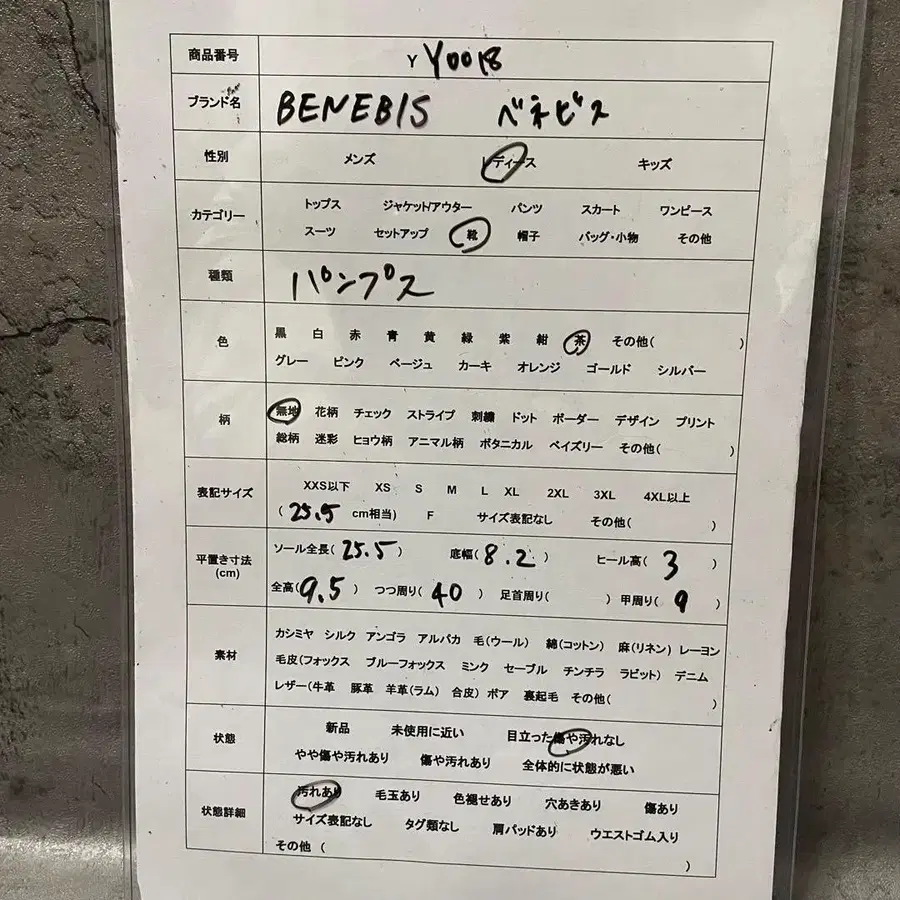 商品番号 Y Y0018
ブランド名 BENEBIS ベネビス
性別 メンズ レディース キッズ
カテゴリー トップス ジャケット/アウター パンツ スカート ワンピース
スーツ セットアップ 靴 帽子 バッグ・小物 その他
種類 パンプス
色 黒 白 赤 青 黄 緑 紫 紺 茶 その他( )
グレー ピンク ベージュ カーキ オレンジ ゴールド シルバー
柄 無地 花柄 チェック ストライプ 刺繍 ドット ボーダー デザイン プリント
総柄 迷彩 ヒョウ柄 アニマル柄 ボタニカル ペイズリー その他( )
表記サイズ XXS以下 XS S M L XL 2XL 3XL 4XL以上
( 25.5 cm相当) F サイズ表記なし その他( )
平置き寸法 (cm) ソール全長( 25.5 ) 底幅( 8.2 ) ヒール高( 3 )
全高( 9.5 ) つつ周り( 40 ) 足首周り( ) 甲周り( 9 )
素材 カシミヤ シルク アンゴラ アルパカ 毛(ウール) 綿(コットン) 麻(リネン) レーヨン
毛皮(フォックス ブルーフォックス ミンク セーブル チンチラ ラビット) デニム
レザー(牛革 豚革 羊革(ラム) 合皮) ボア 裏起毛 その他( )
状態 新品 未使用に近い 目立った傷や汚れなし
やや傷や汚れあり 傷や汚れあり 全体的に状態が悪い
状態詳細 汚れあり 毛玉あり 色褪せあり 穴あきあり 傷あり
サイズ表記なし タグ類なし 肩パッドあり ウエストゴム入り
その他 ( )